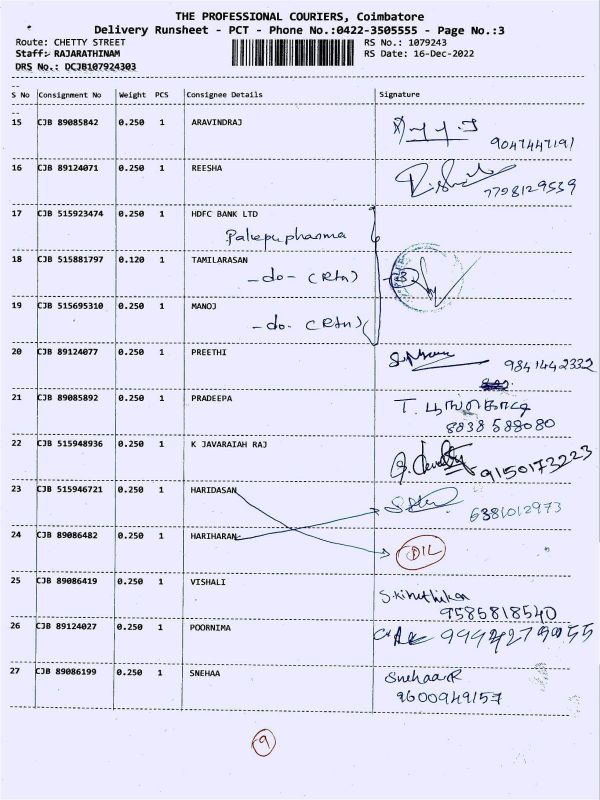 THE PROFESSIONAL COURIERS, Coimbatore
Delivery Runsheet - PCT - Phone No.:0422-3505555 - Page No.:3
Route: CHETTY STREET RS No.: 1079243
Staff: RAJARATHINAM RS Date: 16-Dec-2022
DRS No.: DCJB107924303
S No Consignment No Weight PCS Consignee Details Signature
15 CJB 89085842 0.250 1 ARAVINDRAJ
9047447191
16 CJB 89124071 0.250 1 REESHA
7708129539
17 CJB 515923474 0.250 1 HDFC BANK LTD
18 CJB 515881797 0.120 1 TAMILARASAN
-do- (Rtn)
19 CJB 515695310 0.250 1 MANOJ
-do- (Rtn)
20 CJB 89124077 0.250 1 PREETHI
9841442332
21 CJB 89085892 0.250 1 PRADEEPA
T. பூங்கொடி
8838 588080
22 CJB 515948936 0.250 1 K JAVARAIAH RAJ
9150173223
23 CJB 515946721 0.250 1 HARIDASAN
6381012973
24 CJB 89086482 0.250 1 HARIHARAN
D/L
25 CJB 89086419 0.250 1 VISHALI
S.Kiruthika
9585818540
26 CJB 89124027 0.250 1 POORNIMA
27 CJB 89086199 0.250 1 SNEHAA
Snehaa R
9600949157
9